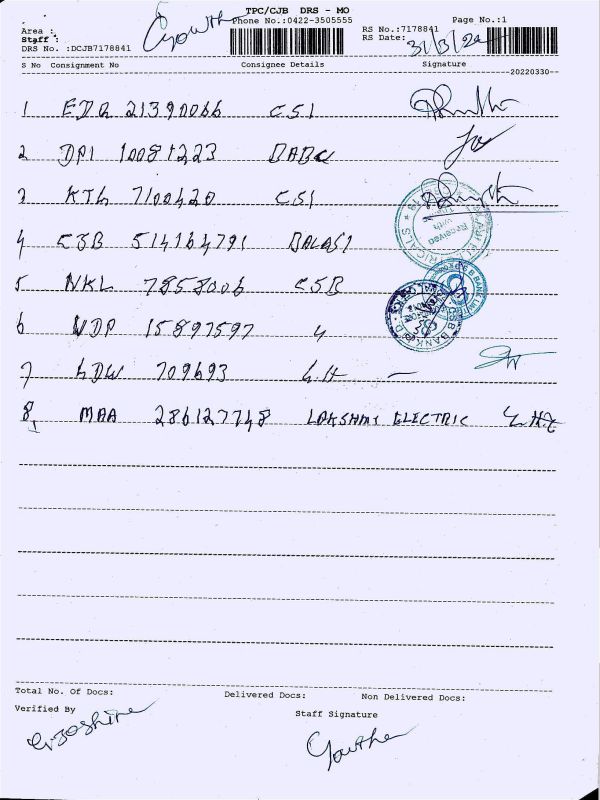 TPC/CJB DRS - MO
Area : Phone No.:0422-3505555 RS No.:7178841 Page No.:1
Staff : Gowtham RS Date: 31/3/22
DRS No. :DCJB7178841
S No Consignment No Consignee Details Signature
20220330
1 EDR 21390066 CSI
2 DPI 10081223 BABU
3 KTL 7100420 CSI
4 CJB 514164791 BALAJI
5 NKL 7858006 CSB
6 UDP 15897597 "
7 LDW 709693 L.H
8 MAA 286127748 LAKSHMI ELECTRIC L.H.E
Total No. Of Docs: Delivered Docs: Non Delivered Docs:
Verified By Staff Signature